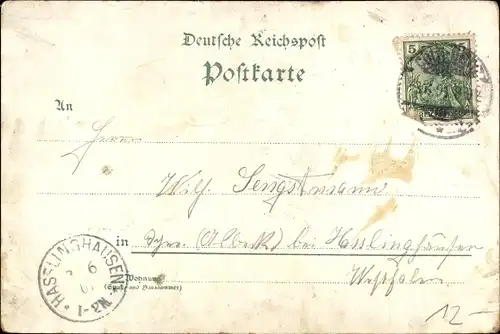 Deutsche Reichspost
Postkarte
5 5
An
Herrn
Wilh. Sengstmann
in
(Albek) bei Hasslinghausen
Westfalen
Wohnung
(Straße und Hausnummer)
HASSLINGHAUSEN
6
12-